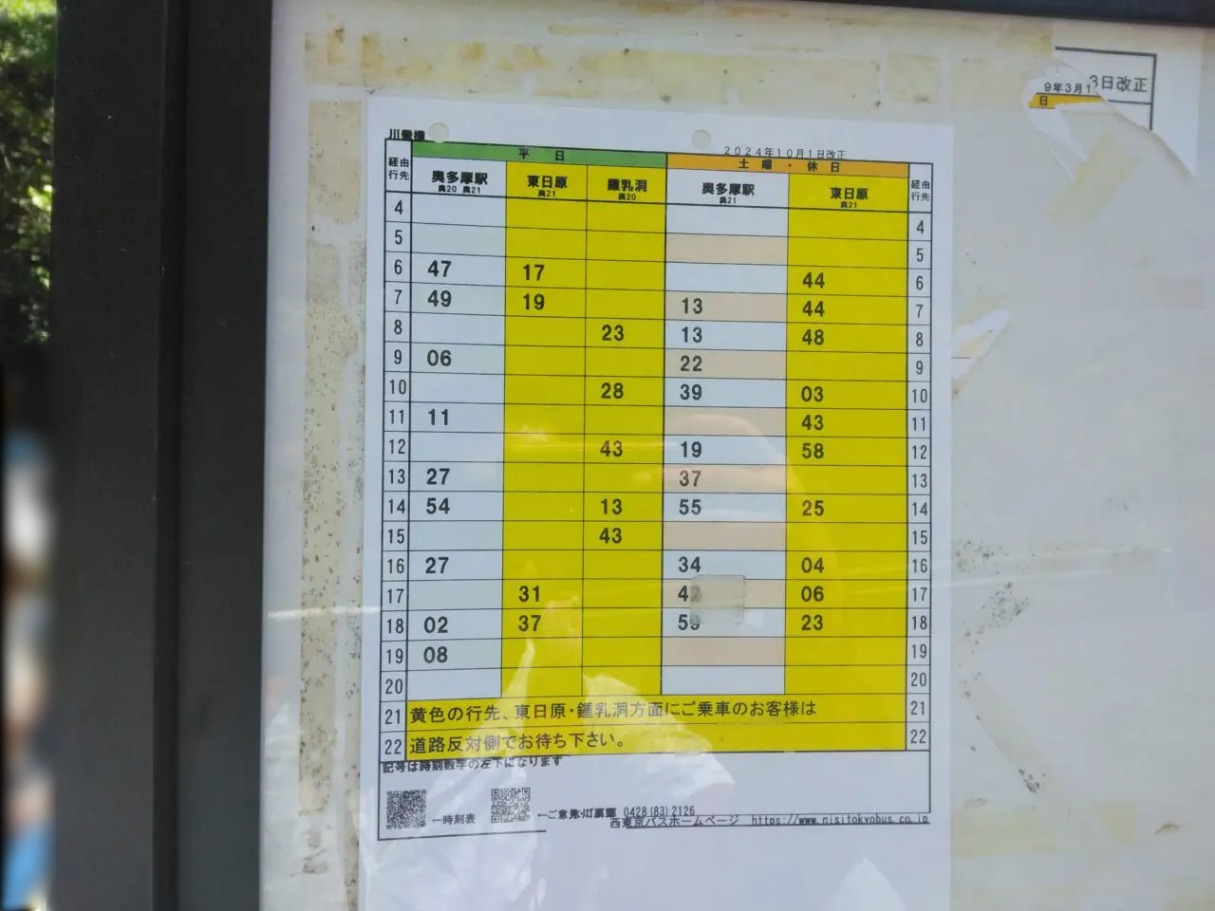 9年3月1
3日改正
日
川乗橋
2024年10月1日改正
経由 行先 平日 土曜・休日 経由 行先
奥多摩駅 東日原 鍾乳洞 奥多摩駅 東日原
奥20 奥21 奥21 奥20 奥21 奥21
4 4
5 5
6 47 17 44 6
7 49 19 13 44 7
8 23 13 48 8
9 06 22 9
10 28 39 03 10
11 11 43 11
12 43 19 58 12
13 27 37 13
14 54 13 55 25 14
15 43 15
16 27 34 04 16
17 31 42 06 17
18 02 37 59 23 18
19 08 19
20 20
21 黄色の行先、東日原・鍾乳洞方面にご乗車のお客様は 21
22 道路反対側でお待ち下さい。 22
記号は時刻数字の左下になります
←時刻表
0428(83)2126
西東京バスホームページ https://www.nisitokyobus.co.jp